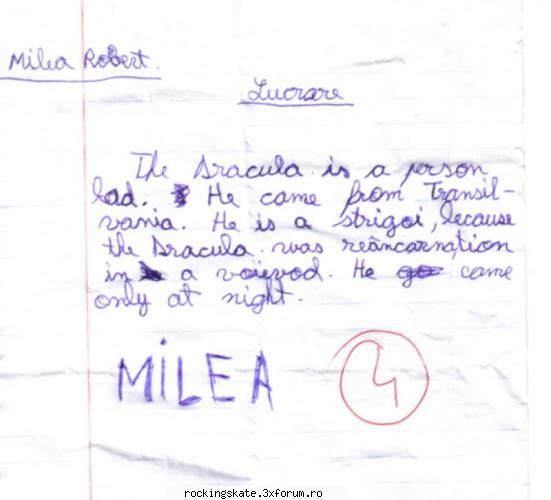 Milea Robert.
Lucrare
The Dracula is a person
bad. He came from Transil-
vania. He is a strigoi, because
the Dracula was reâncarnation
in a voievod. He came
only at night.
MiLEA
4
rockingskate.3xforum.ro